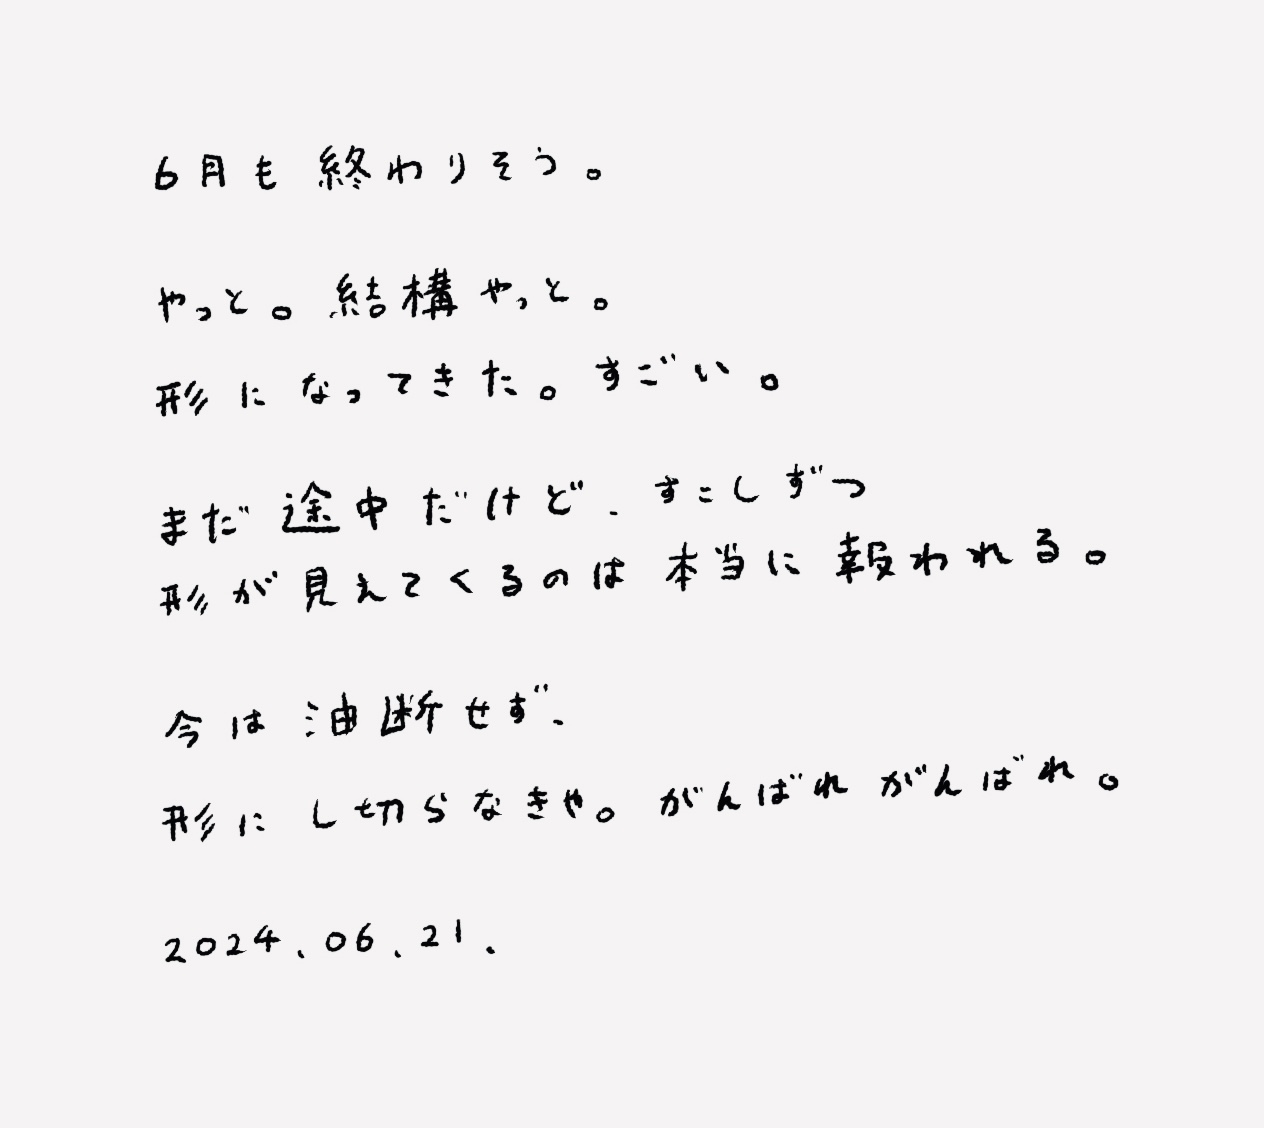 6月も終わりそう。
やっと。結構やっと。
形になってきた。すごい。
まだ途中だけど、すこしずつ
形が見えてくるのは本当に報われる。
今は油断せず、
形にし切らなきゃ。がんばれがんばれ。
2024.06.21.